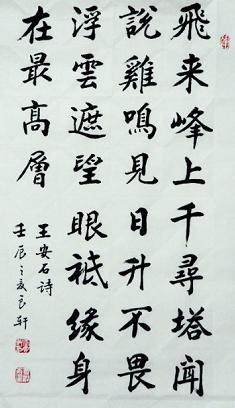 飛来峰上千尋塔聞
說雞鳴見日升不畏
浮雲遮望眼祗緣身
在最高層
王安石诗
壬辰之亥良轩